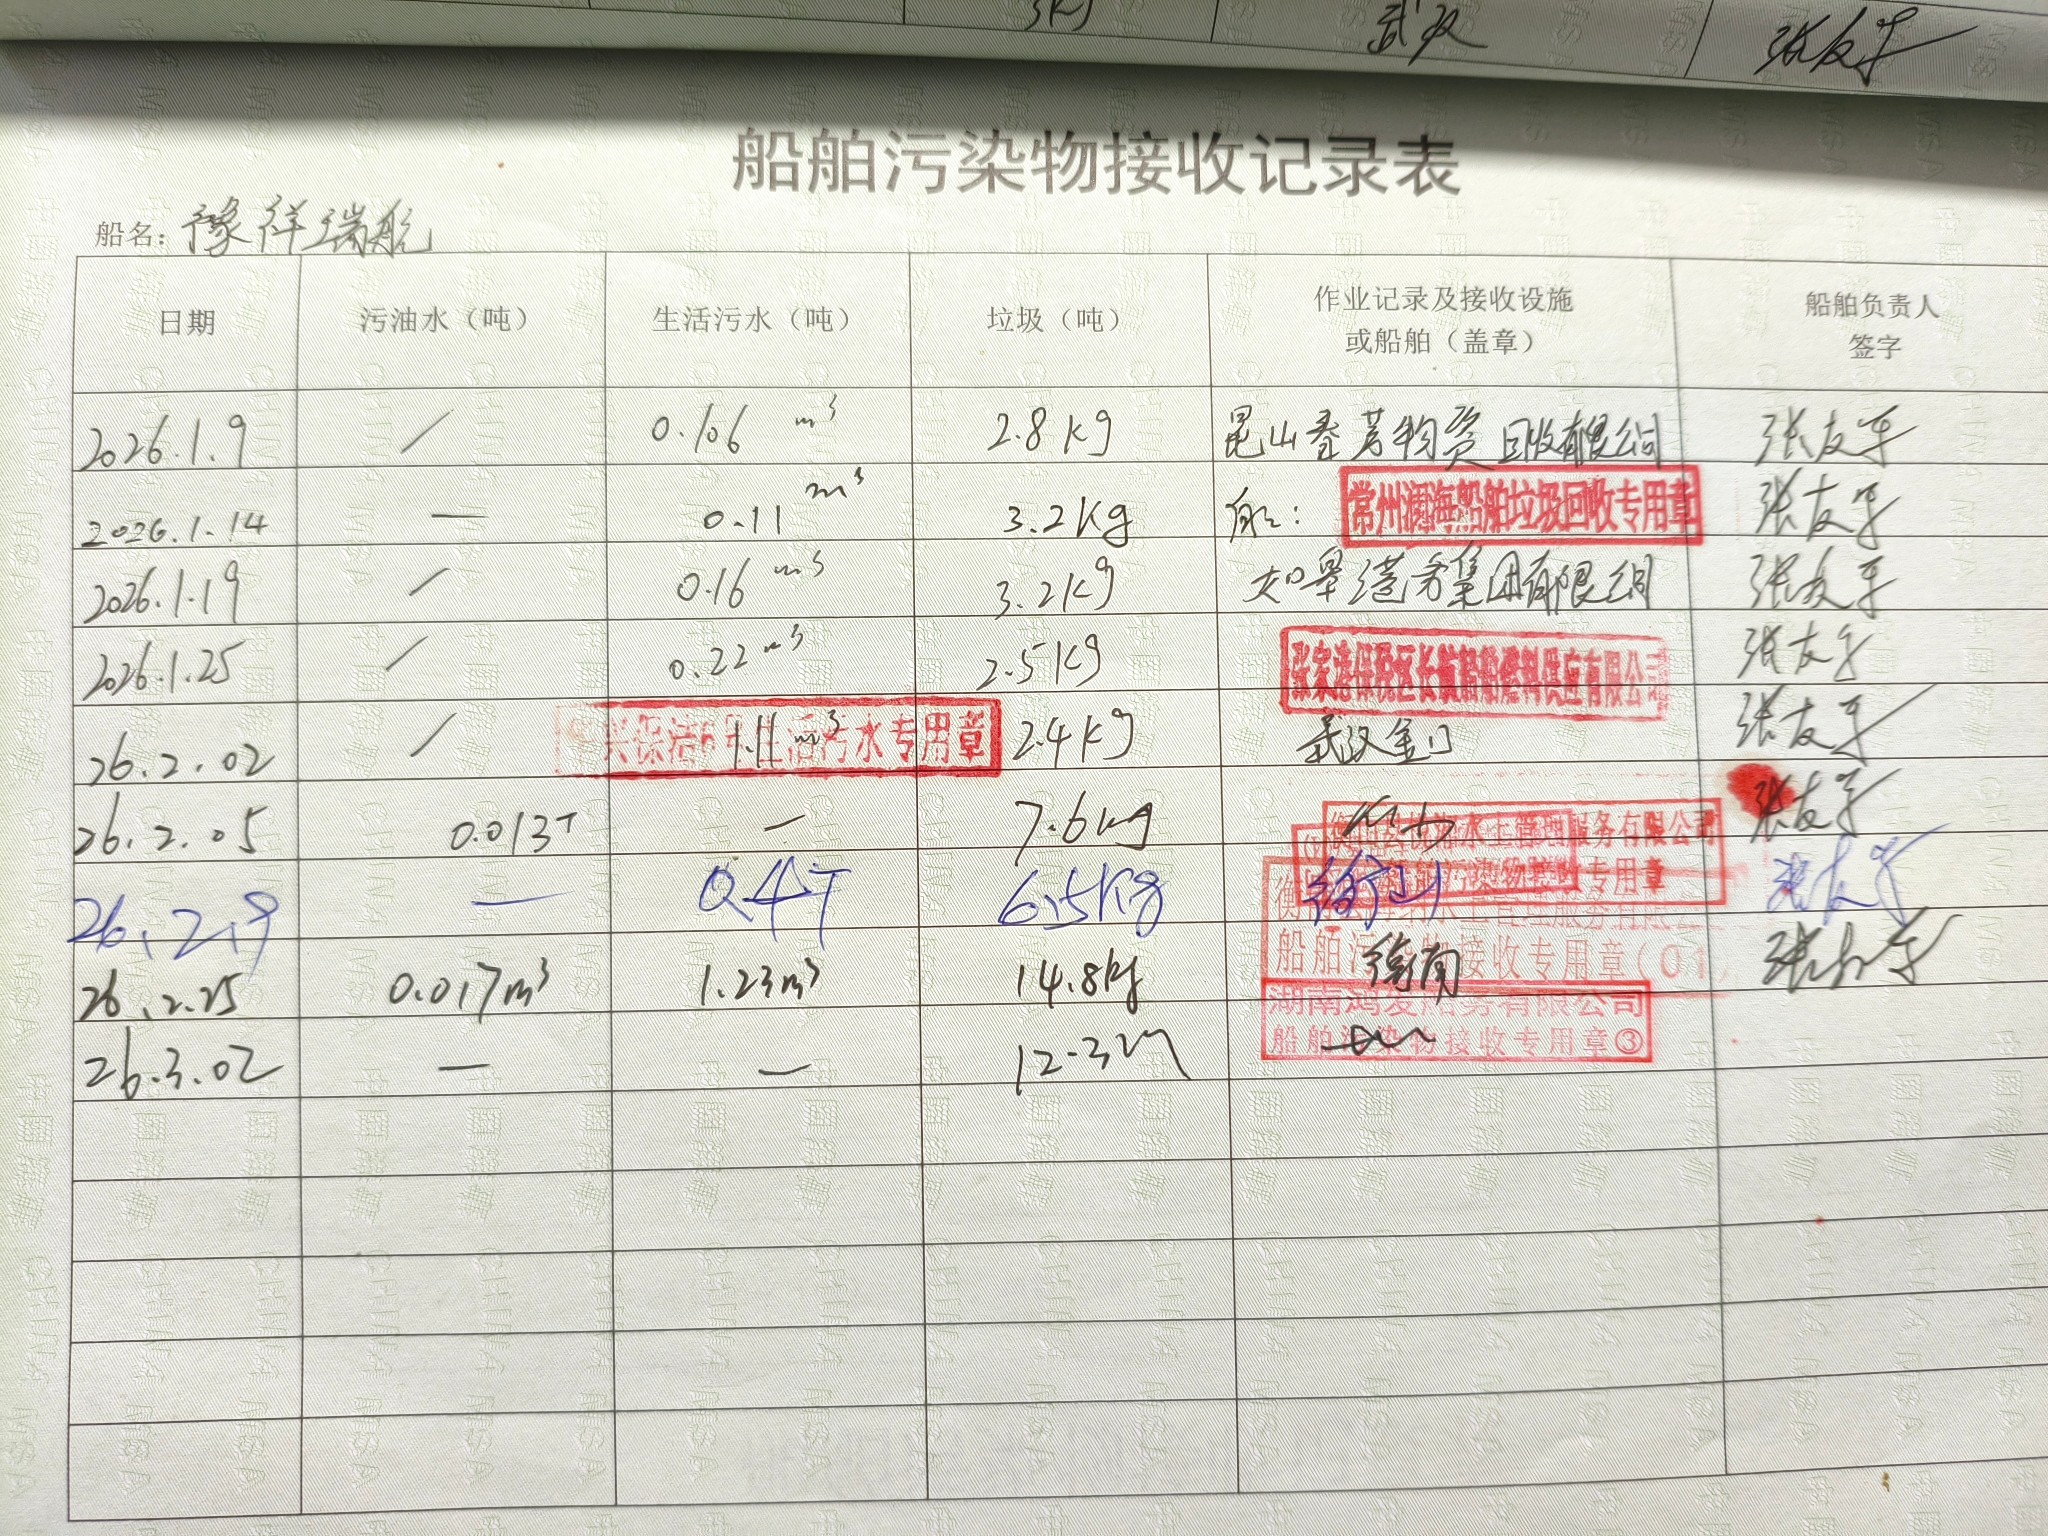 武汉 张友军
船舶污染物接收记录表
船名：豫祥瑞航
日期 污油水（吨） 生活污水（吨） 垃圾（吨） 作业记录及接收设施或船舶（盖章） 船舶负责人签字
2026.1.9 / 0.106 m³ 2.8kg 昆山 物资回收有限公司 张友军
2026.1.14 — 0.11 m³ 3.2kg 常州澜海船舶垃圾回收专用章 张友军
2026.1.19 / 0.16 m³ 3.2kg 如皋港务集团有限公司 张友军
2026.1.25 / 0.22 m³ 2.5kg 张家港保税区长航船舶燃料供应有限公司 张友军
26.2.02 / 1.11 m³ 生活污水专用章 2.4kg 武汉金口 张友军
26.2.05 0.013T — 7.6kg 水上管理服务有限公司 张友军
船舶污染物接收专用章
26.2.9 — 0.4T 6.5kg 衡山 张友军
26.2.25 0.017m³ 1.23m³ 14.8kg 衡南 船舶污染物接收专用章(01) 张友军
湖南鸿 船务有限公司
26.3.02 — — 12.3 船舶污染物接收专用章③